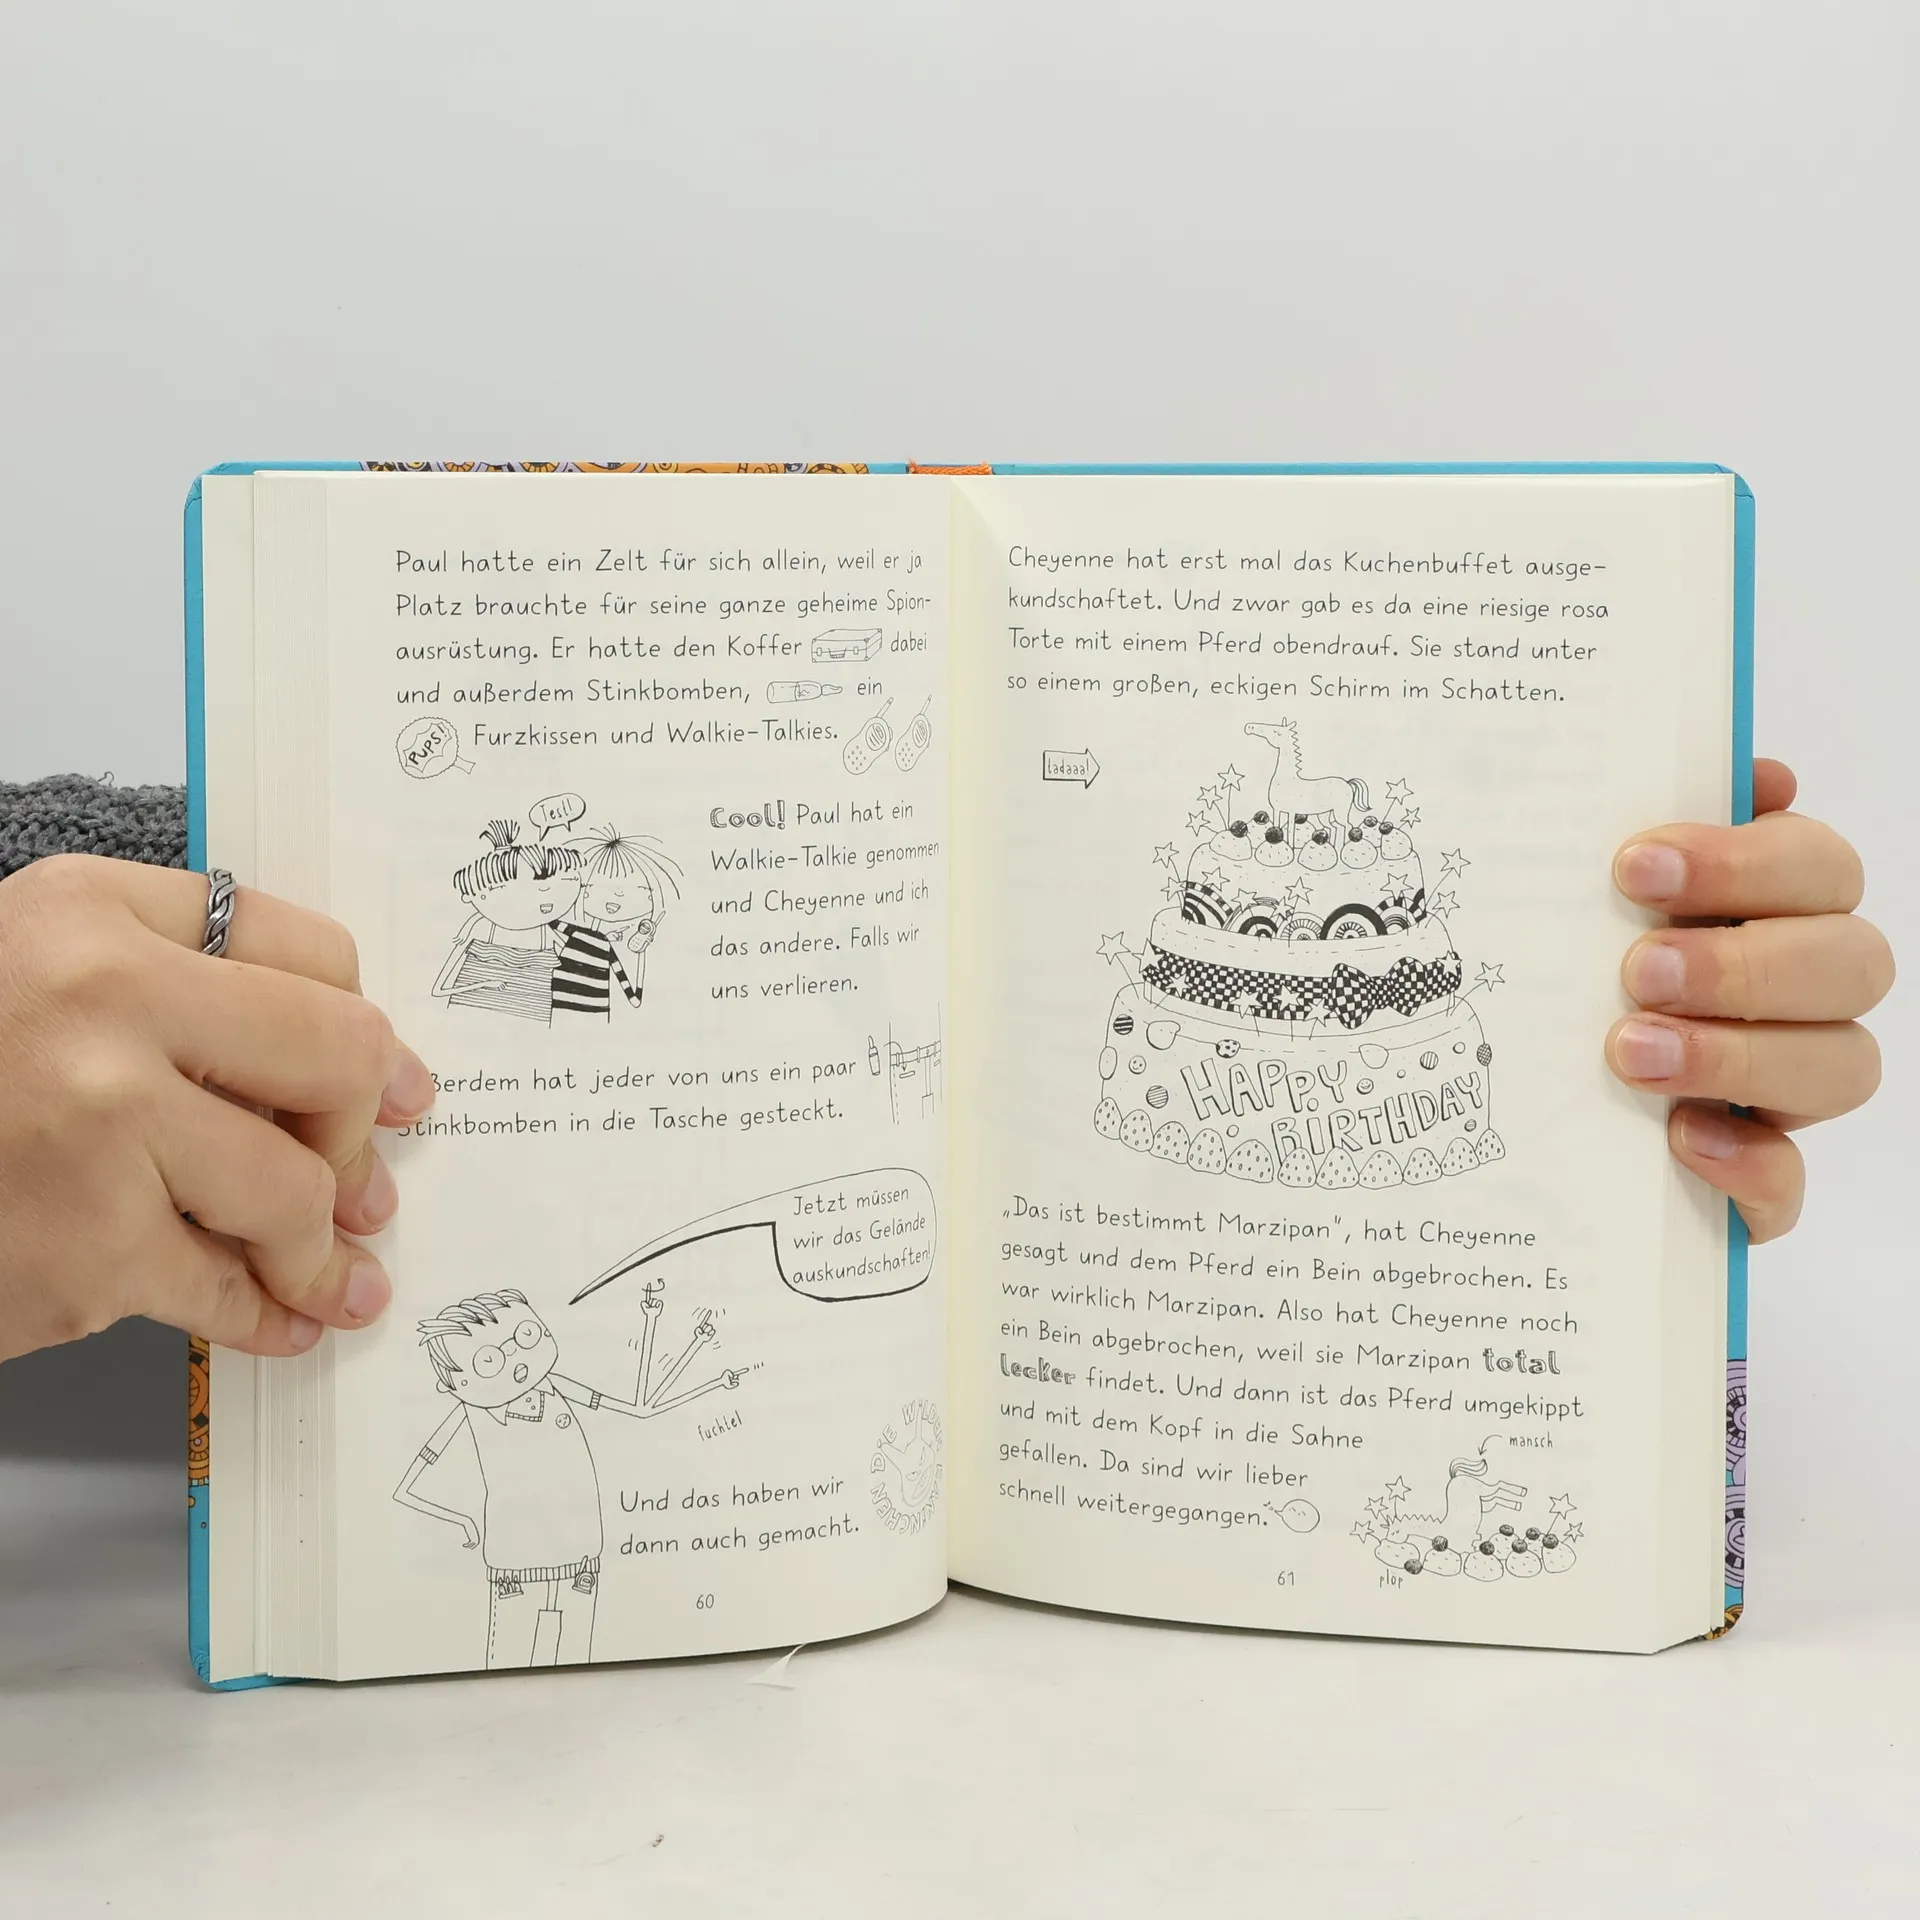 Paul hatte ein Zelt für sich allein, weil er ja
Platz brauchte für seine ganze geheime Spion-
ausrüstung. Er hatte den Koffer dabei
und außerdem Stinkbomben, ein
PUPS!
Furzkissen und Walkie-Talkies.
Test!
Cool! Paul hat ein
Walkie-Talkie genommen
und Cheyenne und ich
das andere. Falls wir
uns verlieren.
ßerdem hat jeder von uns ein paar
Stinkbomben in die Tasche gesteckt.
Jetzt müssen
wir das Gelände
auskundschaften!
fuchtel
DIE WILDEN KANINCHEN
Und das haben wir
dann auch gemacht.
60
Cheyenne hat erst mal das Kuchenbuffet ausge-
kundschaftet. Und zwar gab es da eine riesige rosa
Torte mit einem Pferd obendrauf. Sie stand unter
so einem großen, eckigen Schirm im Schatten.
tadaaa!
HAPPY
BIRTHDAY
„Das ist bestimmt Marzipan", hat Cheyenne
gesagt und dem Pferd ein Bein abgebrochen. Es
war wirklich Marzipan. Also hat Cheyenne noch
ein Bein abgebrochen, weil sie Marzipan total
lecker findet. Und dann ist das Pferd umgekippt
und mit dem Kopf in die Sahne
gefallen. Da sind wir lieber
schnell weitergegangen.
mansch
plop
61